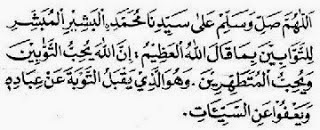 اَللّٰهُمَّ صَلِّ وَسَلِّمْ عَلٰى سَيِّدِنَا مُحَمَّدِ ࣙالْبَشِيْرِ الْمُبَشِّرِ
لِلتَّوَّابِيْنَ بِمَا قَالَ اللّٰهُ الْعَظِيْمُ ؛ اِنَّ اللّٰهَ يُحِبُّ التَّوَّابِيْنَ
وَيُحِبُّ الْمُتَطَهِّرِيْنَ . وَهُوَ الَّذِيْ يَقْبَلُ التَّوْبَةَ عَنْ عِبَادِهِ
وَيَعْفُوْا عَنِ السَّيِّئَاتِ .